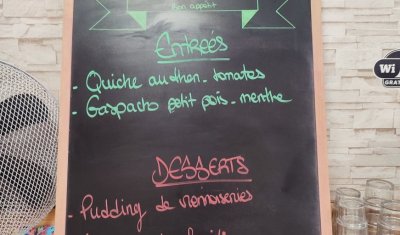 Bon appétit
Entrées
- Quiche au thon - tomates
- Gaspacho petit pois - menthe
DESSERTS
- Pudding de viennoiseries
Wi
GRAT